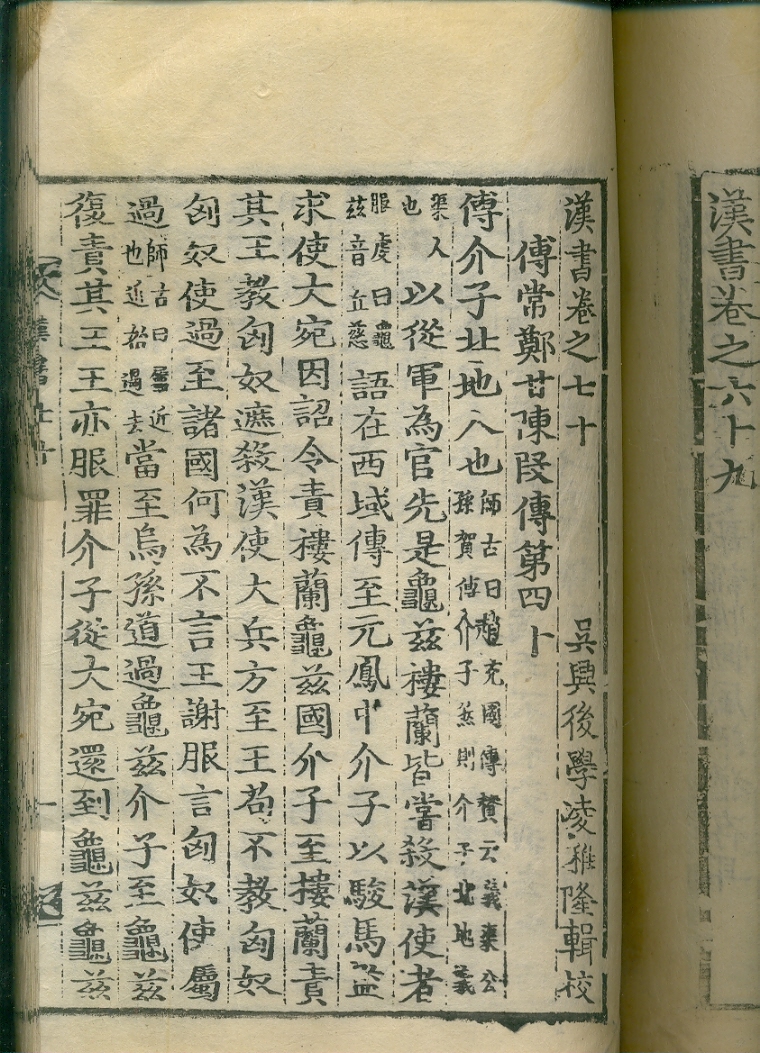 漢書卷之六十九
漢書卷之七十 吳興後學凌稚隆輯校
傅常鄭甘陳段傳第四十
傅介子北地人也師古曰趙充國傳贊云義渠公孫賀傅介子然則介子北地義
渠人也以從軍為官先是龜茲樓蘭皆嘗殺漢使者
服虔曰龜茲音丘慈語在西域傳至元鳳中介子以駿馬監
求使大宛因詔令責樓蘭龜茲國介子至樓蘭責
其王教匈奴遮殺漢使大兵方至王苟不教匈奴
匈奴使過至諸國何為不言王謝服言匈奴使屬
過師古曰屬近也近始過去當至烏孫道過龜茲介子至龜茲
復責其王王亦服罪介子從大宛還到龜茲龜茲